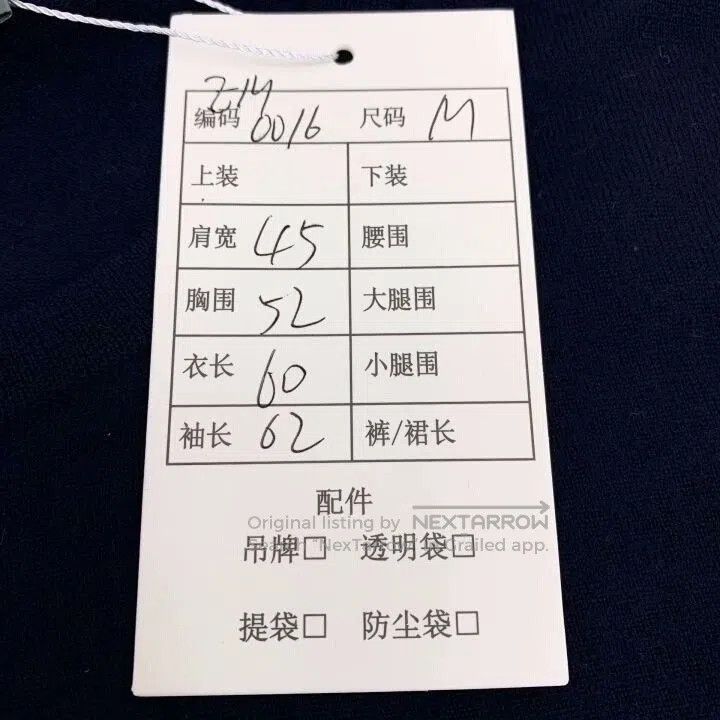 Z-14
编码 0016 尺码 M
上装 下装
肩宽 45 腰围
胸围 52 大腿围
衣长 60 小腿围
袖长 62 裤/裙长
配件
Original listing by NEXTARROW
吊牌□ 透明袋□
Grailed app.
提袋□ 防尘袋□